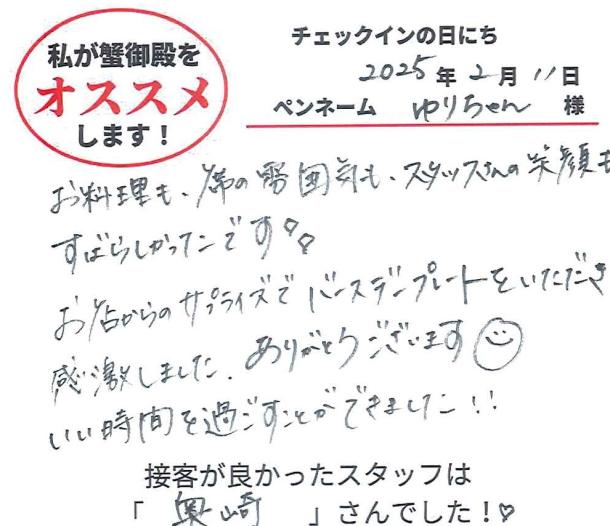 私が蟹御殿を
オススメ
します！
チェックインの日にち
2025年2月11日
ペンネーム ゆりちゃん 様
お料理も、席の雰囲気も、スタッフさんの笑顔も
すばらしかったです
お店からのサプライズでバースデープレートをいただき
感激しました。ありがとうございます
いい時間を過ごすことができました!!
接客が良かったスタッフは
「 奥崎 」さんでした！♡